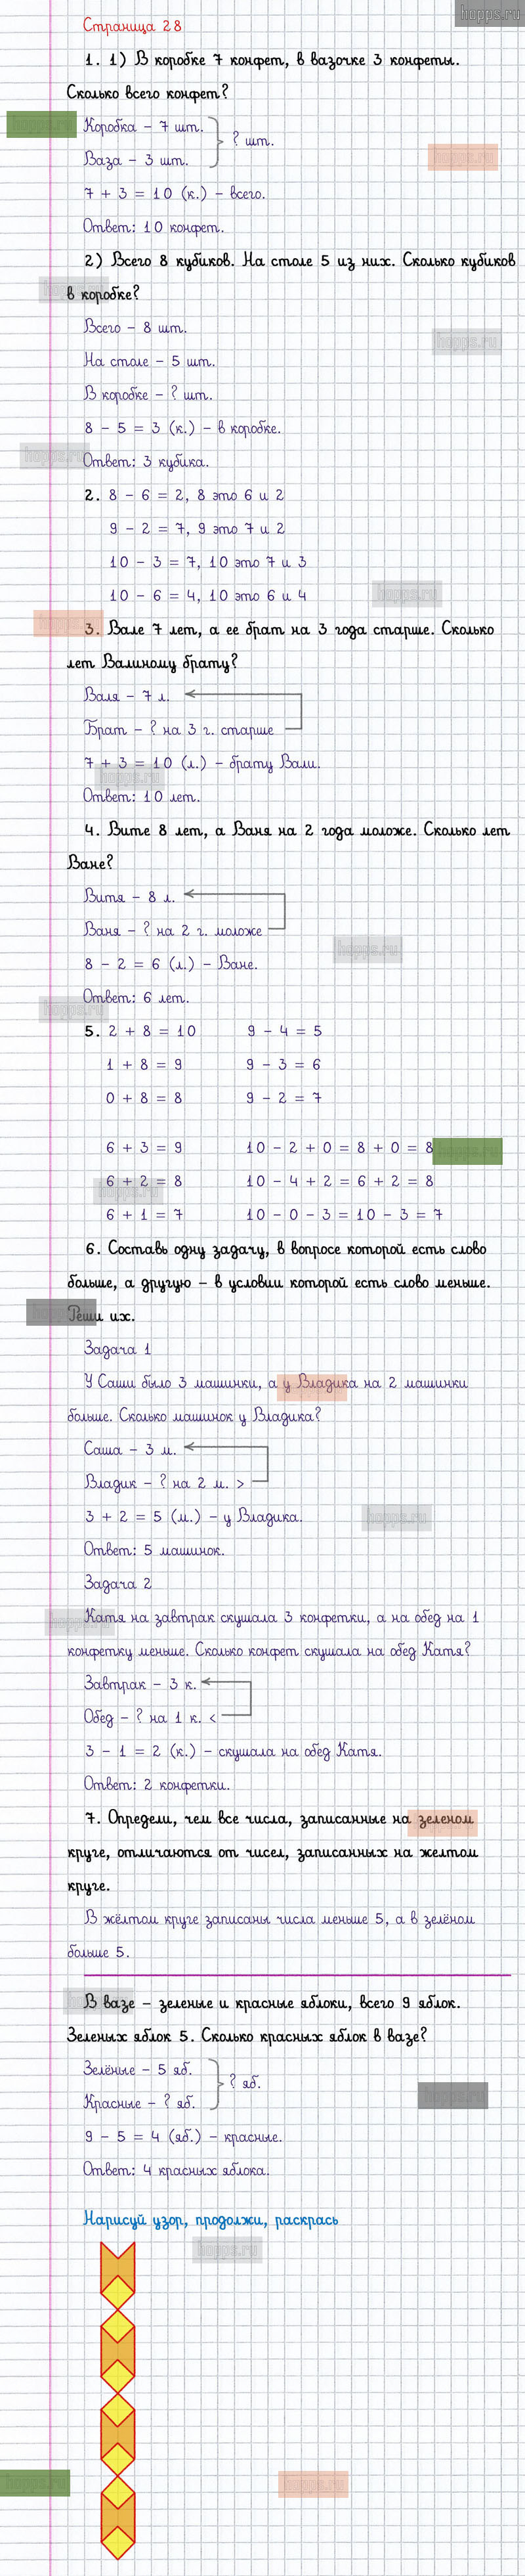 Страница 28
hopps.ru
1. 1) В коробке 7 конфет, в вазочке 3 конфеты.
Сколько всего конфет?
hopps.ru
Коробка – 7 шт.
? шт.
Ваза – 3 шт.
hopps.ru
7 + 3 = 10 (к.) – всего.
Ответ: 10 конфет.
2) Всего 8 кубиков. На столе 5 из них. Сколько кубиков
в коробке?
hopps.ru
Всего – 8 шт.
hopps.ru
На столе – 5 шт.
В коробке – ? шт.
8 – 5 = 3 (к.) – в коробке.
hopps.ru
Ответ: 3 кубика.
2. 8 – 6 = 2, 8 это 6 и 2
9 – 2 = 7, 9 это 7 и 2
10 – 3 = 7, 10 это 7 и 3
10 – 6 = 4, 10 это 6 и 4
hopps.ru
3. Вале 7 лет, а ее брат на 3 года старше. Сколько
лет Валиному брату?
Валя – 7 л.
Брат – ? на 3 г. старше
7 + 3 = 10 (л.) – брату Вали.
hopps.ru
Ответ: 10 лет.
4. Вите 8 лет, а Ваня на 2 года моложе. Сколько лет
Ване?
Витя – 8 л.
Ваня – ? на 2 г. моложе
hopps.ru
8 – 2 = 6 (л.) – Ване.
Ответ: 6 лет.
hopps.ru
5. 2 + 8 = 10 9 – 4 = 5
1 + 8 = 9 9 – 3 = 6
0 + 8 = 8 9 – 2 = 7
6 + 3 = 9 10 – 2 + 0 = 8 + 0 = 8
hopps.ru
6 + 2 = 8 10 – 4 + 2 = 6 + 2 = 8
hopps.ru
6 + 1 = 7 10 – 0 – 3 = 10 – 3 = 7
6. Составь одну задачу, в вопросе которой есть слово
больше, а другую – в условии которой есть слово меньше.
Реши их.
Задача 1
У Саши было 3 машинки, а у Владика на 2 машинки
больше. Сколько машинок у Владика?
Саша – 3 м.
Владик – ? на 2 м. >
3 + 2 = 5 (м.) – у Владика.
hopps.ru
Ответ: 5 машинок.
Задача 2
hopps.ru
Катя на завтрак скушала 3 конфетки, а на обед на 1
конфетку меньше. Сколько конфет скушала на обед Катя?
Завтрак – 3 к.
Обед – ? на 1 к. <
3 – 1 = 2 (к.) – скушала на обед Катя.
Ответ: 2 конфетки.
7. Определи, чем все числа, записанные на зеленом
круге, отличаются от чисел, записанных на желтом
круге.
В жёлтом круге записаны числа меньше 5, а в зелёном
больше 5.
В вазе – зеленые и красные яблоки, всего 9 яблок.
Зеленых яблок 5. Сколько красных яблок в вазе?
Зелёные – 5 яб.
? яб.
Красные – ? яб.
hopps.ru
9 – 5 = 4 (яб.) – красные.
Ответ: 4 красных яблока.
Нарисуй узор, продолжи, раскрась
hopps.ru
hopps.ru
hopps.ru